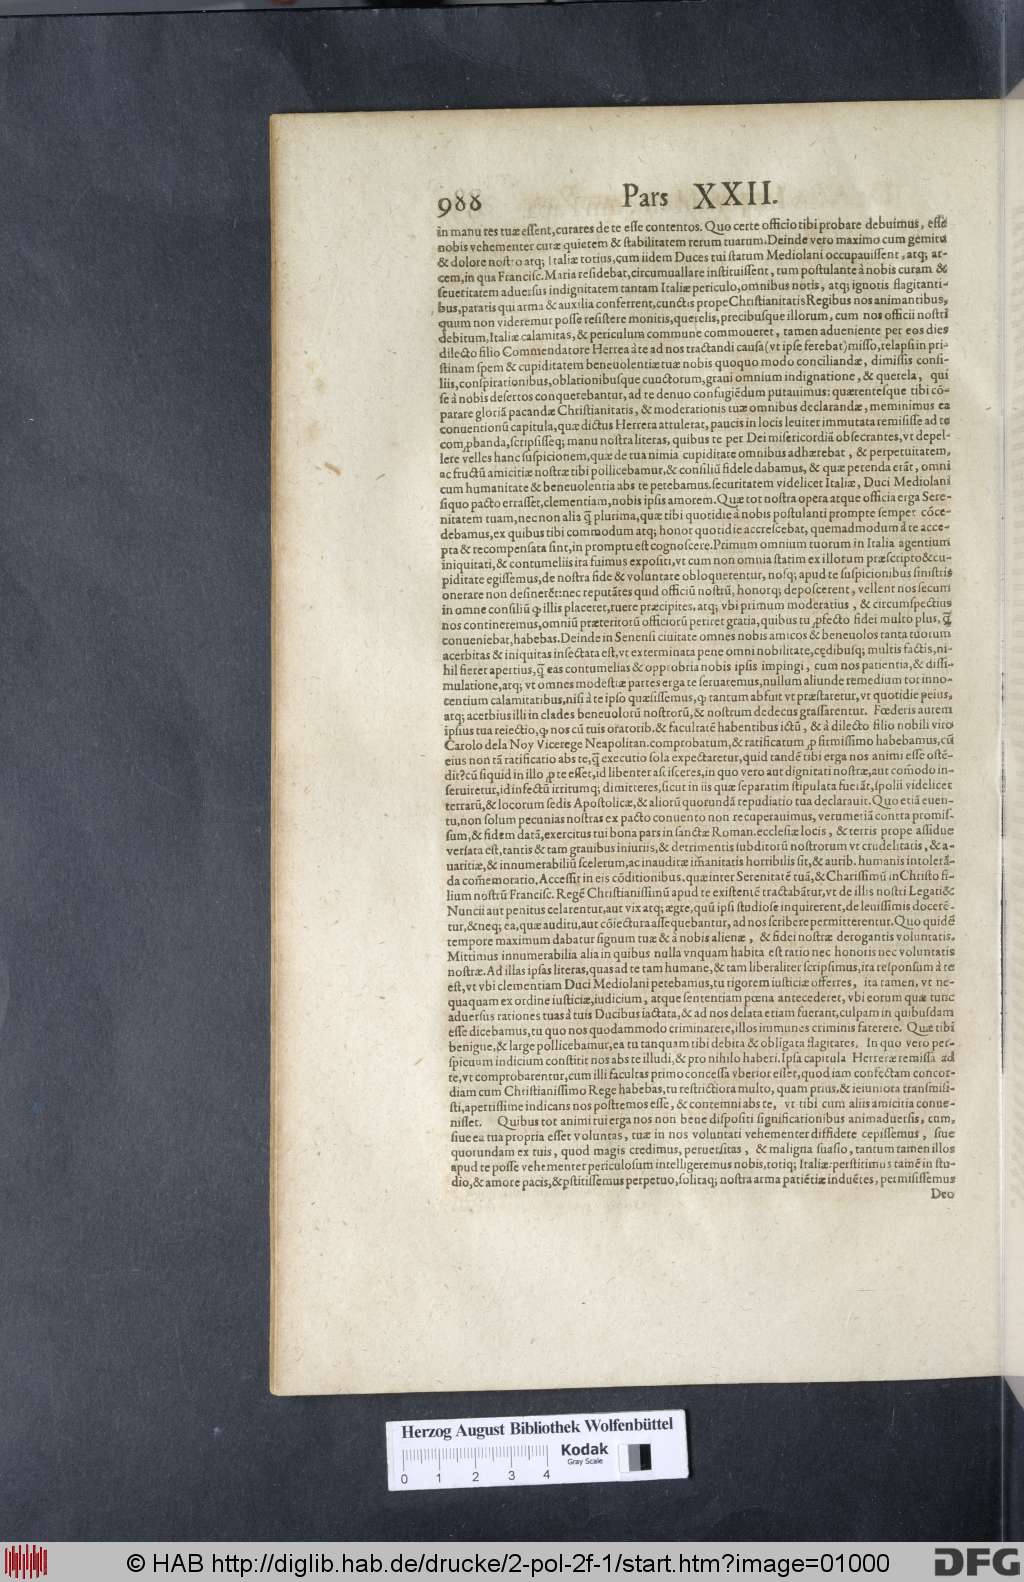 988 Pars XXII.
in manu tes tuæ essent, curares de te esse contentos. Quo certe officio tibi probare debuimus, esse
nobis vehementer curæ quietem & stabilitatem rerum tuarum. Deinde vero maximo cum gemitu
& dolore nostro atq; Italiæ totius, cum iidem Duces tui statum Mediolani occupauissent, atq; ar-
cem, in qua Francisc. Maria residebat, circumuallare instituissent, tum postulante à nobis curam &
seueritatem aduersus indignitatem tantam Italiæ periculo, omnibus notis, atq; ignotis flagitanti-
bus, paratis qui arma & auxilia conferrent, cunctis prope Christianitatis Regibus nos animantibus,
quum non videremur posse resistere monitis, querelis, precibusque illorum, cum nos officii nostri
debitum, Italiæ calamitas, & periculum commune commoueret, tamen adueniente per eos dies
dilecto filio Commendatore Herrea à te ad nos tractandi causa (vt ipse ferebat) misso, relapsi in pri-
stinam spem & cupiditatem beneuolentiæ tuæ nobis quoquo modo conciliandæ, dimissis consi-
liis, conspirationibus, oblationibusque cunctorum, graui omnium indignatione, & querela, qui
se à nobis desertos conquerebantur, ad te denuo confugiẽdum putauimus: quærentesque tibi cõ-
parare gloriã pacandæ Christianitatis, & moderationis tuæ omnibus declarandæ, meminimus ea
conuentionũ capitula, quæ dictus Herrera attulerat, paucis in locis leuiter immutata remisisse ad te
comꝓbanda, scripsisseq; manu nostra literas, quibus te per Dei misericordiã obsecrantes, vt depel-
lere velles hanc suspicionem, quæ de tua nimia cupiditate omnibus adhærebat, & perpetuitatem,
ac fructũ amicitiæ nostræ tibi pollicebamur, & consiliũ fidele dabamus, & quæ petenda erãt, omni
cum humanitate & beneuolentia abs te petebamus. securitatem videlicet Italiæ, Duci Mediolani
siquo pacto errasset, clementiam, nobis ipsis amorem. Quæ tot nostra opera atque officia erga Sere-
nitatem tuam, nec non alia q̃ plurima, quæ tibi quotidie à nobis postulanti prompte semper cõce-
debamus, ex quibus tibi commodum atq; honor quotidie accrescebat, quemadmodum à te acce-
pta & recompensata sint, in promptu est cognoscere. Primum omnium tuorum in Italia agentium
iniquitati, & contumeliis ita fuimus expositi, vt cum non omnia statim ex illorum præscripto & cu-
piditate egissemus, de nostra fide & voluntate obloquerentur, nosq; apud te suspicionibus sinistris
onerare non desinerẽt: nec reputãtes quid officiũ nostrũ, honorq; deposcerent, vellent nos secum
in omne consiliũ ꝙ illis placeret, ruere præcipites, atq; vbi primum moderatius, & circumspectius
nos contineremus, omniũ præteritorũ officiorũ periret gratia, quibus tu ꝓfecto fidei multo plus, q̃
conueniebat, habebas. Deinde in Senensi ciuitate omnes nobis amicos & beneuolos tanta tuorum
acerbitas & iniquitas insectata est, vt exterminata pene omni nobilitate, cędibusq; multis factis, ni-
hil fieret apertius, q̃ eas contumelias & opprobria nobis ipsis impingi, cum nos patientia, & dissi-
mulatione, atq; vt omnes modestiæ partes erga te seruaremus, nullum aliunde remedium tot inno-
centium calamitatibus, nisi à te ipso quæsissemus, ꝙ tantum abfuit vt præstaretur, vt quotidie peius,
atq; acerbius illi in clades beneuolorũ nostrorũ, & nostrum dedecus grassarentur. Fœderis autem
ipsius tua reiectio, ꝙ nos cũ tuis oratorib. & facultatẽ habentibus ictũ, & à dilecto filio nobili viro
Carolo dela Noy Vicerege Neapolitan. comprobatum, & ratificatum ꝓ firmissimo habebamus, cũ
eius non tã ratificatio abs te, q̃ executio sola expectaretur, quid tandẽ tibi erga nos animi esse ostẽ-
dit? cũ siquid in illo ꝓ te esset, id libenter ascisceres, in quo vero aut dignitati nostræ, aut com̃odo in-
seruiretur, id infectũ irritumq; dimitteres, sicut in iis quæ separatim stipulata fuerãt, spolii videlicet
terrarũ, & locorum sedis Apostolicæ, & aliorũ quorundã repudiatio tua declarauit. Quo etiã euen-
tu, non solum pecunias nostras ex pacto conuento non recuperauimus, verumetiã contra promis-
sum, & fidem datã, exercitus tui bona pars in sanctæ Roman. ecclesiæ locis, & terris prope assidue
versata est, tantis & tam grauibus iniuriis, & detrimentis subditorũ nostrorum vt crudelitatis, & a-
uaritiæ, & innumerabiliũ scelerum, ac inauditæ im̃anitatis horribilis sit, & aurib. humanis intolerã-
da com̃emoratio. Accessit in eis cõditionibus, quæ inter Serenitatẽ tuã, & Charissimũ in Christo fi-
lium nostrũ Francisc. Regẽ Christianissimũ apud te existentẽ tractabãtur, vt de illis nostri Legati &
Nuncii aut penitus celarentur, aut vix atq; ægre, quũ ipsi studiose inquirerent, de leuissimis docerẽ-
tur, & neq; ea, quæ auditu, aut cõiectura assequebantur, ad nos scribere permitterentur. Quo quidẽ
tempore maximum dabatur signum tuæ & à nobis alienæ, & fidei nostræ derogantis voluntatis.
Mittimus innumerabilia alia in quibus nulla vnquam habita est ratio nec honoris nec voluntatis
nostræ. Ad illas ipsas literas, quas ad te tam humane, & tam liberaliter scripsimus, ita responsum à te
est, vt vbi clementiam Duci Mediolani petebamus, tu rigorem iusticiæ offerres, ita tamen, vt ne-
quaquam ex ordine iusticiæ, iudicium, atque sententiam pœna antecederet, vbi eorum quæ tunc
aduersus rationes tuas à tuis Ducibus iactata, & ad nos delata etiam fuerant, culpam in quibusdam
esse dicebamus, tu quo nos quodammodo criminarere, illos immunes criminis faterere. Quæ tibi
benigne, & large pollicebamur, ea tu tanquam tibi debita & obligata flagitares. In quo vero per-
spicuum indicium constitit nos abs te illudi, & pro nihilo haberi. Ipsa capitula Herreræ remissa ad
te, vt comprobarentur, cum illi facultas primo concessa vberior esset, quod iam confectam concor-
diam cum Christianissimo Rege habebas, tu restrictiora multo, quam prius, & ieiuniora transmisi-
sti, apertissime indicans nos postremos esse, & contemni abs te, vt tibi cum aliis amicitia conue-
nisset. Quibus tot animi tui erga nos non bene dispositi significationibus animaduersis, cum,
siue ea tua propria esset voluntas, tuæ in nos voluntati vehementer diffidere cepissemus, siue
quorundam ex tuis, quod magis credimus, peruersitas, & maligna suasio, tantum tamen illos
apud te posse vehementer periculosum intelligeremus nobis, totiq; Italiæ: perstitimus tamẽ in stu-
dio, & amore pacis, & p̃stitissemus perpetuo, solitaq; nostra arma patiẽtiæ induẽtes, permisissemus
Deo
Herzog August Bibliothek Wolfenbüttel
0 1 2 3 4
Kodak
Gray Scale
© HAB http://diglib.hab.de/drucke/2-pol-2f-1/start.htm?image=01000
DFG